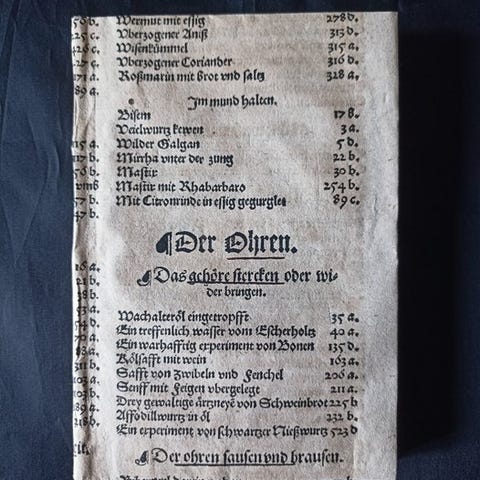 Wermut mit essig 278 d.
Vberzogener Aniß 313 d.
Wisenkümmel 315 a.
Vberzogener Coriander 316 d.
Roßmarin mit brot vnd saltz 328 a.
Im mund halten.
Bisem 178.
Veielwurtz kewen 3 a.
Wilder Galgan 5 d.
Mirrha vnter der zung 22 b.
Mastix 30 b.
Mastix mit Rhabarbaro 254 b.
Mit Citronrinde in essig gegurglet 89 c.
Der Ohren.
Das gehöre stercken oder wi-
der bringen.
Wachalteröl eingetropfft 35 a.
Ein treffenlich wasser vom Escherholtz 40 a.
Ein warhafftig experiment von Bonen 135 d.
Kölsafft mit wein 163 a.
Safft von zwibeln vnd Fenchel 206 a.
Senff mit Feigen vbergelegt 211 a.
Drey gewaltige ärtzneyē von Schweinbrot 225 b
Affodillwurtz in öl 232 b.
Ein experimēt von schwartzer Nießwurtz 523 d
Der ohren sausen vnd brausen.